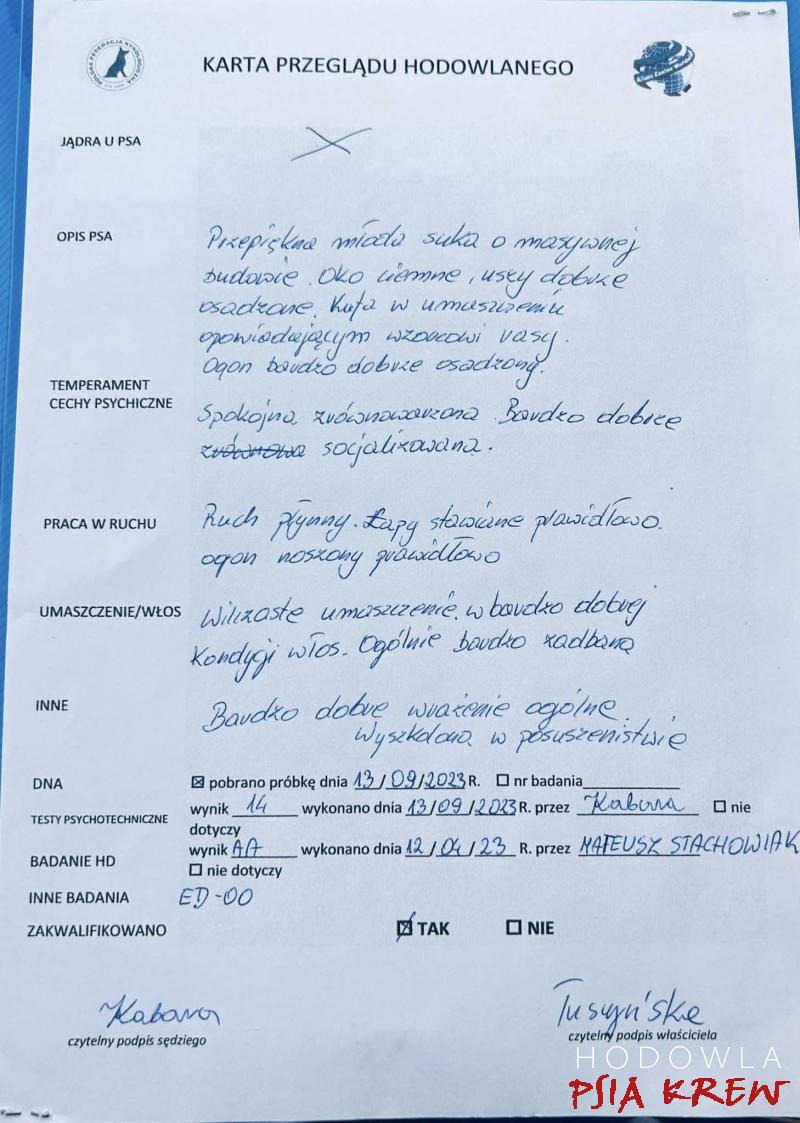 POLSKA FEDERACJA KYNOLOGICZNA
KARTA PRZEGLĄDU HODOWLANEGO
Alianz Canine Worldwide
JĄDRA U PSA
OPIS PSA
Przepiękna młoda suka o masywnej
budowie. Oko ciemne, uszy dobrze
osadzone. Kufa w umaszczeniu
opowiadającym wzorcowi rasy.
Ogon bardzo dobrze osadzony.
TEMPERAMENT
CECHY PSYCHICZNE
Spokojna zrównowarzona. Bardzo dobrze
zrównowa socjalizowana.
PRACA W RUCHU
Ruch płynny. Łapy stawiane prawidłowo.
ogon noszony prawidłowo
UMASZCZENIE/WŁOS
Wilczaste umaszczenie. w bardzo dobrej
kondycji włos. Ogólnie bardzo zadbana
INNE
Bardzo dobre wrażenie ogólne.
Wyszkolona w posuszeństwie
DNA
☒ pobrano próbkę dnia 13/09/2023 R. ☐ nr badania
TESTY PSYCHOTECHNICZNE
wynik 14 wykonano dnia 13/09/2023 R. przez Kabara ☐ nie
dotyczy
BADANIE HD
wynik AA wykonano dnia 12/04/23 R. przez MATEUSZ STACHOWIAK
☐ nie dotyczy
INNE BADANIA
ED-00
ZAKWALIFIKOWANO
☒ TAK ☐ NIE
Kabara
czytelny podpis sędziego
czytelny podpis właściciela
HODOWLA
PSIA KREW